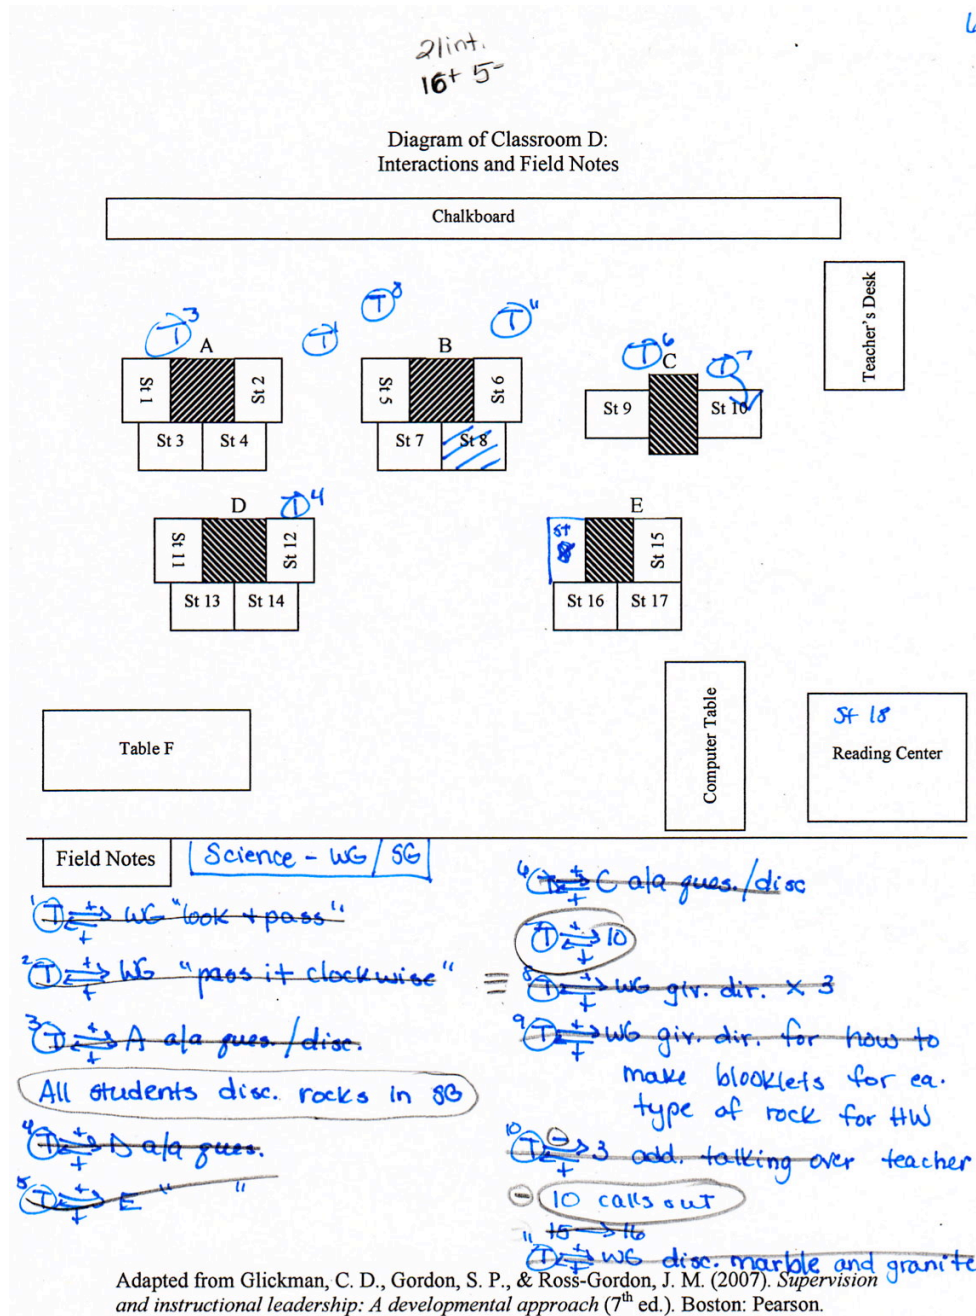 21 int.
16+ 5-
Diagram of Classroom D:
Interactions and Field Notes
Chalkboard
Teacher's Desk
T3
T1
T8
T11
T6
T7
A
B
C
St 1
St 2
St 3
St 4
St 5
St 6
St 7
St 8
St 9
St 10
D
T4
E
St 11
St 12
St 13
St 14
St
St 15
St 16
St 17
Table F
Computer Table
St 18
Reading Center
Field Notes
Science - WG / SG
1 T + + WG "look + pass"
2 T + + WG "pass it clockwise"
3 T + + A a/a ques./disc.
All students disc. rocks in SG
4 T + + D a/a ques.
5 T + + E " "
6 T + + C a/a ques./disc
7 T + + 10
8 T + + WG giv. dir. x 3
9 T + + WG giv. dir. for how to
make blooklets for ea.
type of rock for HW
10 T - + 3 add. talking over teacher
- 10 calls out
15 → 16
11 T + + WG disc. marble and granite
Adapted from Glickman, C. D., Gordon, S. P., & Ross-Gordon, J. M. (2007). Supervision
and instructional leadership: A developmental approach (7th ed.). Boston: Pearson.